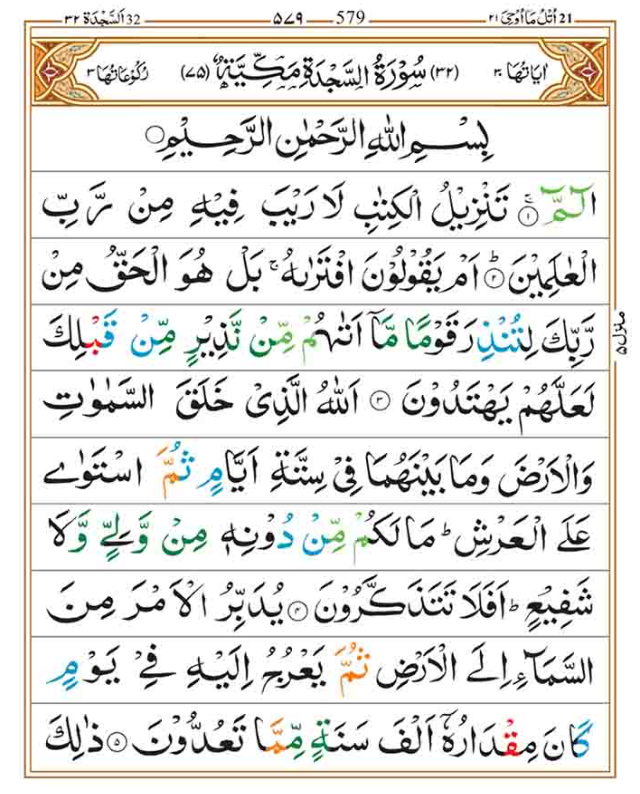 32 اَلسَّجْدَة ٣٢
۵۷۹ 579
21 اُتْلُ مَآ اُوْحِیَ ٢١
اٰیَاتُهَا ٣٠ (٣٢) سُوْرَةُ السَّجْدَةِ مَكِّيَّةٌ (٧٥) رُكُوْعَاتُهَا ٣
بِسْمِ اللهِ الرَّحْمٰنِ الرَّحِيْمِ
الٓمّٓ ۚ ١ تَنْزِيْلُ الْكِتٰبِ لَا رَيْبَ فِيْهِ مِنْ رَّبِّ
الْعٰلَمِيْنَ ؕ ٢ اَمْ يَقُوْلُوْنَ افْتَرٰىهُ ۚ بَلْ هُوَ الْحَقُّ مِنْ
رَّبِّكَ لِتُنْذِرَ قَوْمًا مَّاۤ اَتٰىهُمْ مِّنْ نَّذِيْرٍ مِّنْ قَبْلِكَ
لَعَلَّهُمْ يَهْتَدُوْنَ ٣ اَللّٰهُ الَّذِىْ خَلَقَ السَّمٰوٰتِ
وَالْاَرْضَ وَمَا بَيْنَهُمَا فِىْ سِتَّةِ اَيَّامٍ ثُمَّ اسْتَوٰى
عَلَى الْعَرْشِ ؕ مَا لَكُمْ مِّنْ دُوْنِهٖ مِنْ وَّلِىٍّ وَّلَا
شَفِيْعٍ ؕ اَفَلَا تَتَذَكَّرُوْنَ ٤ يُدَبِّرُ الْاَمْرَ مِنَ
السَّمَآءِ اِلَى الْاَرْضِ ثُمَّ يَعْرُجُ اِلَيْهِ فِىْ يَوْمٍ
كَانَ مِقْدَارُهٗۤ اَلْفَ سَنَةٍ مِّمَّا تَعُدُّوْنَ ٥ ذٰلِكَ
منزل ۵